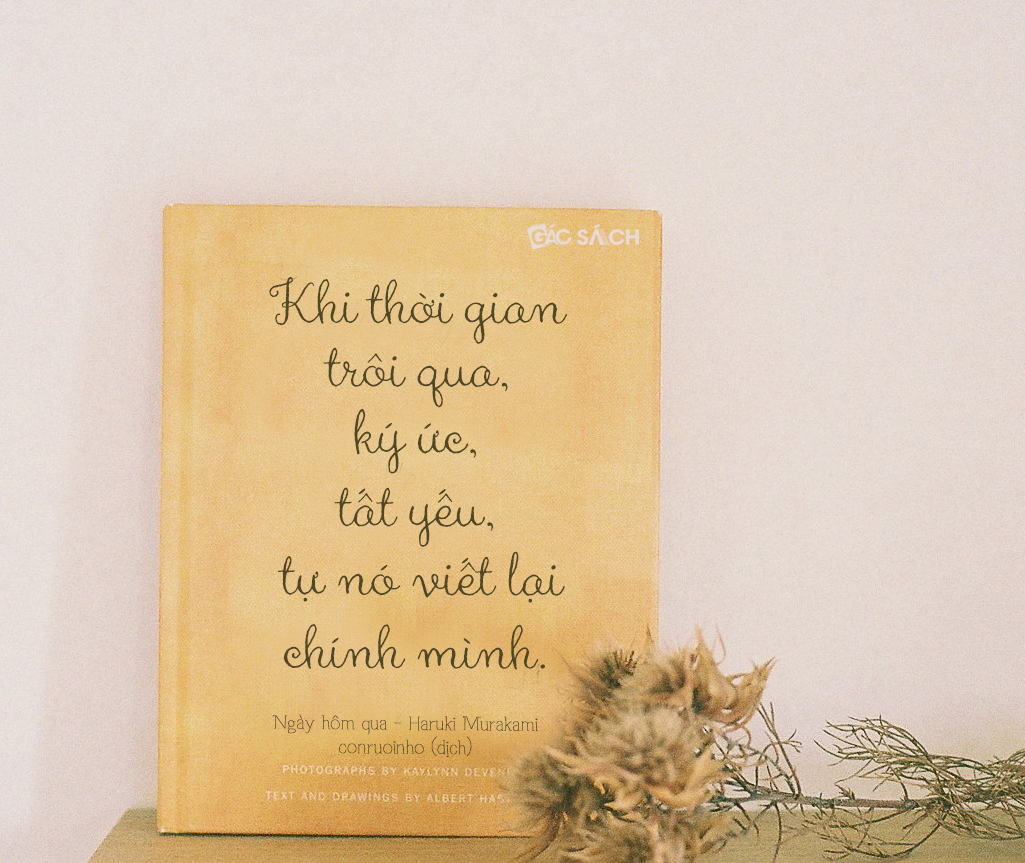 GÁC SÁCH
Khi thời gian
trôi qua,
ký ức,
tất yếu,
tự nó viết lại
chính mình.
Ngày hôm qua - Haruki Murakami
conruoinho (dịch)
PHOTOGRAPHS BY KAYLYNN
TEXT AND DRAWINGS BY ALBERT